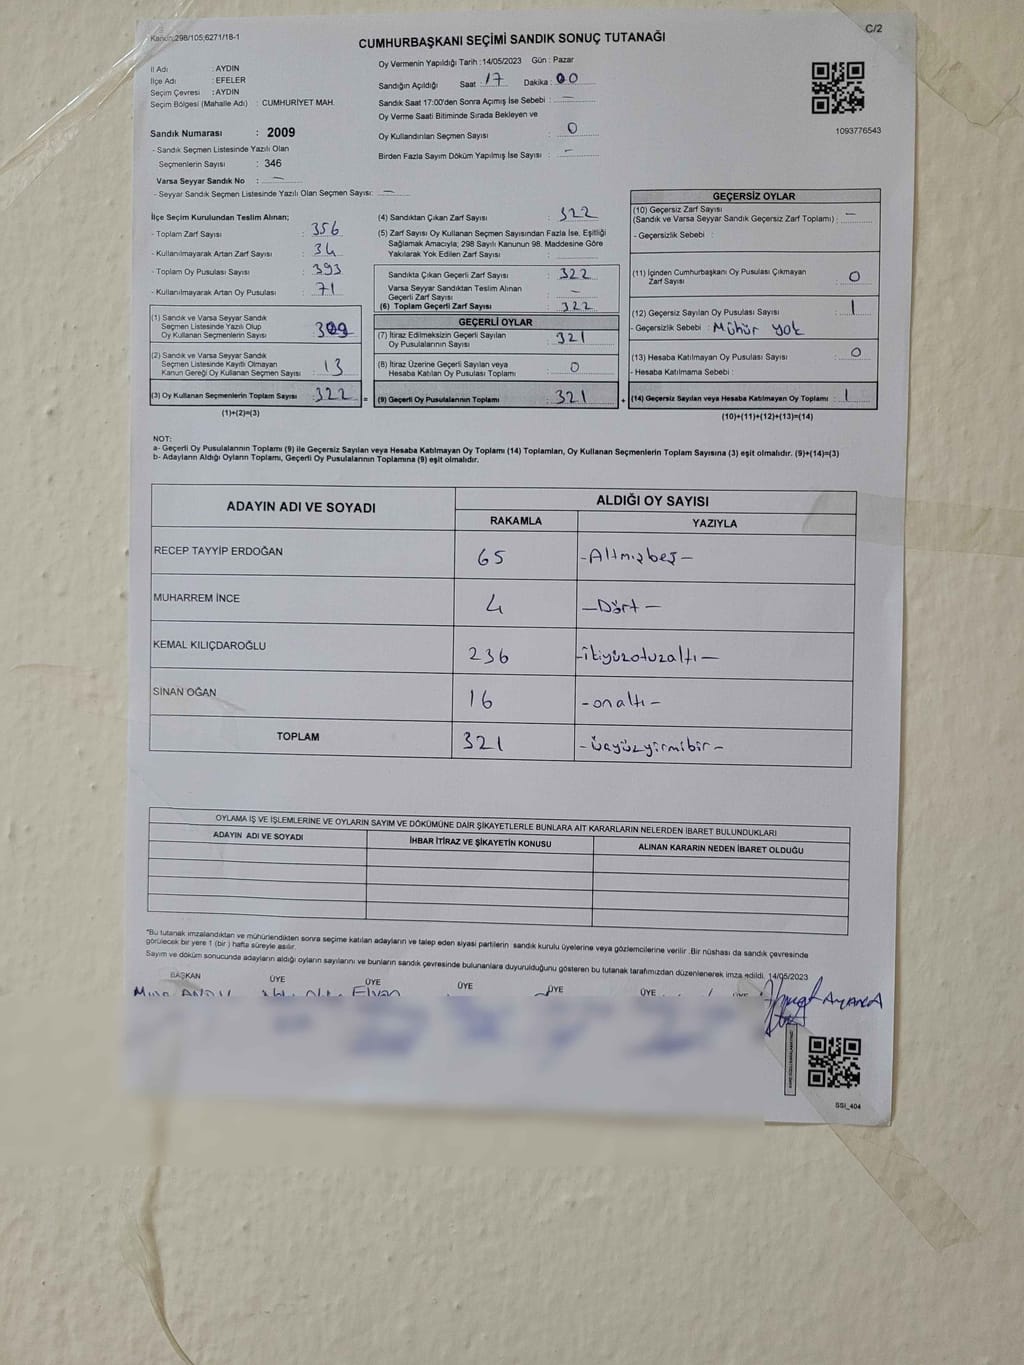 Kanun;298/105;6271/18-1
C/2
CUMHURBAŞKANI SEÇİMİ SANDIK SONUÇ TUTANAĞI
İl Adı : AYDIN
İlçe Adı : EFELER
Seçim Çevresi : AYDIN
Seçim Bölgesi (Mahalle Adı) : CUMHURİYET MAH.
Sandık Numarası : 2009
- Sandık Seçmen Listesinde Yazılı Olan
Seçmenlerin Sayısı : 346
Varsa Seyyar Sandık No : —
- Seyyar Sandık Seçmen Listesinde Yazılı Olan Seçmen Sayısı: —
Oy Vermenin Yapıldığı Tarih :14/05/2023 Gün : Pazar
Sandığın Açıldığı Saat : 17 Dakika : 00
Sandık Saat 17:00'den Sonra Açımış İse Sebebi : —
Oy Verme Saati Bitiminde Sırada Bekleyen ve
Oy Kullandırılan Seçmen Sayısı : 0
Birden Fazla Sayım Döküm Yapılmış İse Sayısı : —
1093776543
İlçe Seçim Kurulundan Teslim Alınan;
- Toplam Zarf Sayısı : 356
- Kullanılmayarak Artan Zarf Sayısı : 34
- Toplam Oy Pusulası Sayısı : 393
- Kullanılmayarak Artan Oy Pusulası : 71
(1) Sandık ve Varsa Seyyar Sandık
Seçmen Listesinde Yazılı Olup
Oy Kullanan Seçmenlerin Sayısı : 309
(2) Sandık ve Varsa Seyyar Sandık
Seçmen Listesinde Kayıtlı Olmayan
Kanun Gereği Oy Kullanan Seçmen Sayısı : 13
(3) Oy Kullanan Seçmenlerin Toplam Sayısı : 322 =
(1)+(2)=(3)
(4) Sandıktan Çıkan Zarf Sayısı : 322
(5) Zarf Sayısı Oy Kullanan Seçmen Sayısından Fazla İse, Eşitliği
Sağlamak Amacıyla; 298 Sayılı Kanunun 98. Maddesine Göre
Yakılarak Yok Edilen Zarf Sayısı :
Sandıkta Çıkan Geçerli Zarf Sayısı : 322
Varsa Seyyar Sandıktan Teslim Alınan
Geçerli Zarf Sayısı : —
(6) Toplam Geçerli Zarf Sayısı : 322
GEÇERLİ OYLAR
(7) İtiraz Edilmeksizin Geçerli Sayılan
Oy Pusulalarının Sayısı : 321
(8) İtiraz Üzerine Geçerli Sayılan veya
Hesaba Katılan Oy Pusulası Toplamı : 0
(9) Geçerli Oy Pusulalarının Toplamı : 321 +
GEÇERSİZ OYLAR
(10) Geçersiz Zarf Sayısı
(Sandık ve Varsa Seyyar Sandık Geçersiz Zarf Toplamı) : —
- Geçersizlik Sebebi :
(11) İçinden Cumhurbaşkanı Oy Pusulası Çıkmayan
Zarf Sayısı : 0
(12) Geçersiz Sayılan Oy Pusulası Sayısı : 1
- Geçersizlik Sebebi : Mühür yok
(13) Hesaba Katılmayan Oy Pusulası Sayısı : 0
- Hesaba Katılmama Sebebi :
(14) Geçersiz Sayılan veya Hesaba Katılmayan Oy Toplamı : 1
(10)+(11)+(12)+(13)=(14)
NOT:
a- Geçerli Oy Pusulalarının Toplamı (9) ile Geçersiz Sayılan veya Hesaba Katılmayan Oy Toplamı (14) Toplamları, Oy Kullanan Seçmenlerin Toplam Sayısına (3) eşit olmalıdır. (9)+(14)=(3)
b- Adayların Aldığı Oyların Toplamı, Geçerli Oy Pusulalarının Toplamına (9) eşit olmalıdır.
ADAYIN ADI VE SOYADI ALDIĞI OY SAYISI
RAKAMLA YAZIYLA
RECEP TAYYİP ERDOĞAN 65 -Altmışbeş-
MUHARREM İNCE 4 -Dört-
KEMAL KILIÇDAROĞLU 236 -ikiyüzotuzaltı-
SİNAN OĞAN 16 -onaltı-
TOPLAM 321 -üçyüzyirmibir-
OYLAMA İŞ VE İŞLEMLERİNE VE OYLARIN SAYIM VE DÖKÜMÜNE DAİR ŞİKAYETLERLE BUNLARA AİT KARARLARIN NELERDEN İBARET BULUNDUKLARI
ADAYIN ADI VE SOYADI İHBAR İTİRAZ VE ŞİKAYETİN KONUSU ALINAN KARARIN NEDEN İBARET OLDUĞU
"Bu tutanak imzalandıktan ve mühürlendikten sonra seçime katılan adayların ve talep eden siyasi partilerin sandık kurulu üyelerine veya gözlemcilerine verilir .Bir nüshası da sandık çevresinde
görülecek bir yere 1 (bir ) hafta süreyle asılır.
Sayım ve döküm sonucunda adayların aldığı oyların sayılarını ve bunların sandık çevresinde bulunanlara duyurulduğunu gösteren bu tutanak tarafımızdan düzenlenerek imza edildi. 14/05/2023
BAŞKAN ÜYE ÜYE ÜYE ÜYE ÜYE ÜYE
Elvan
SSI_404